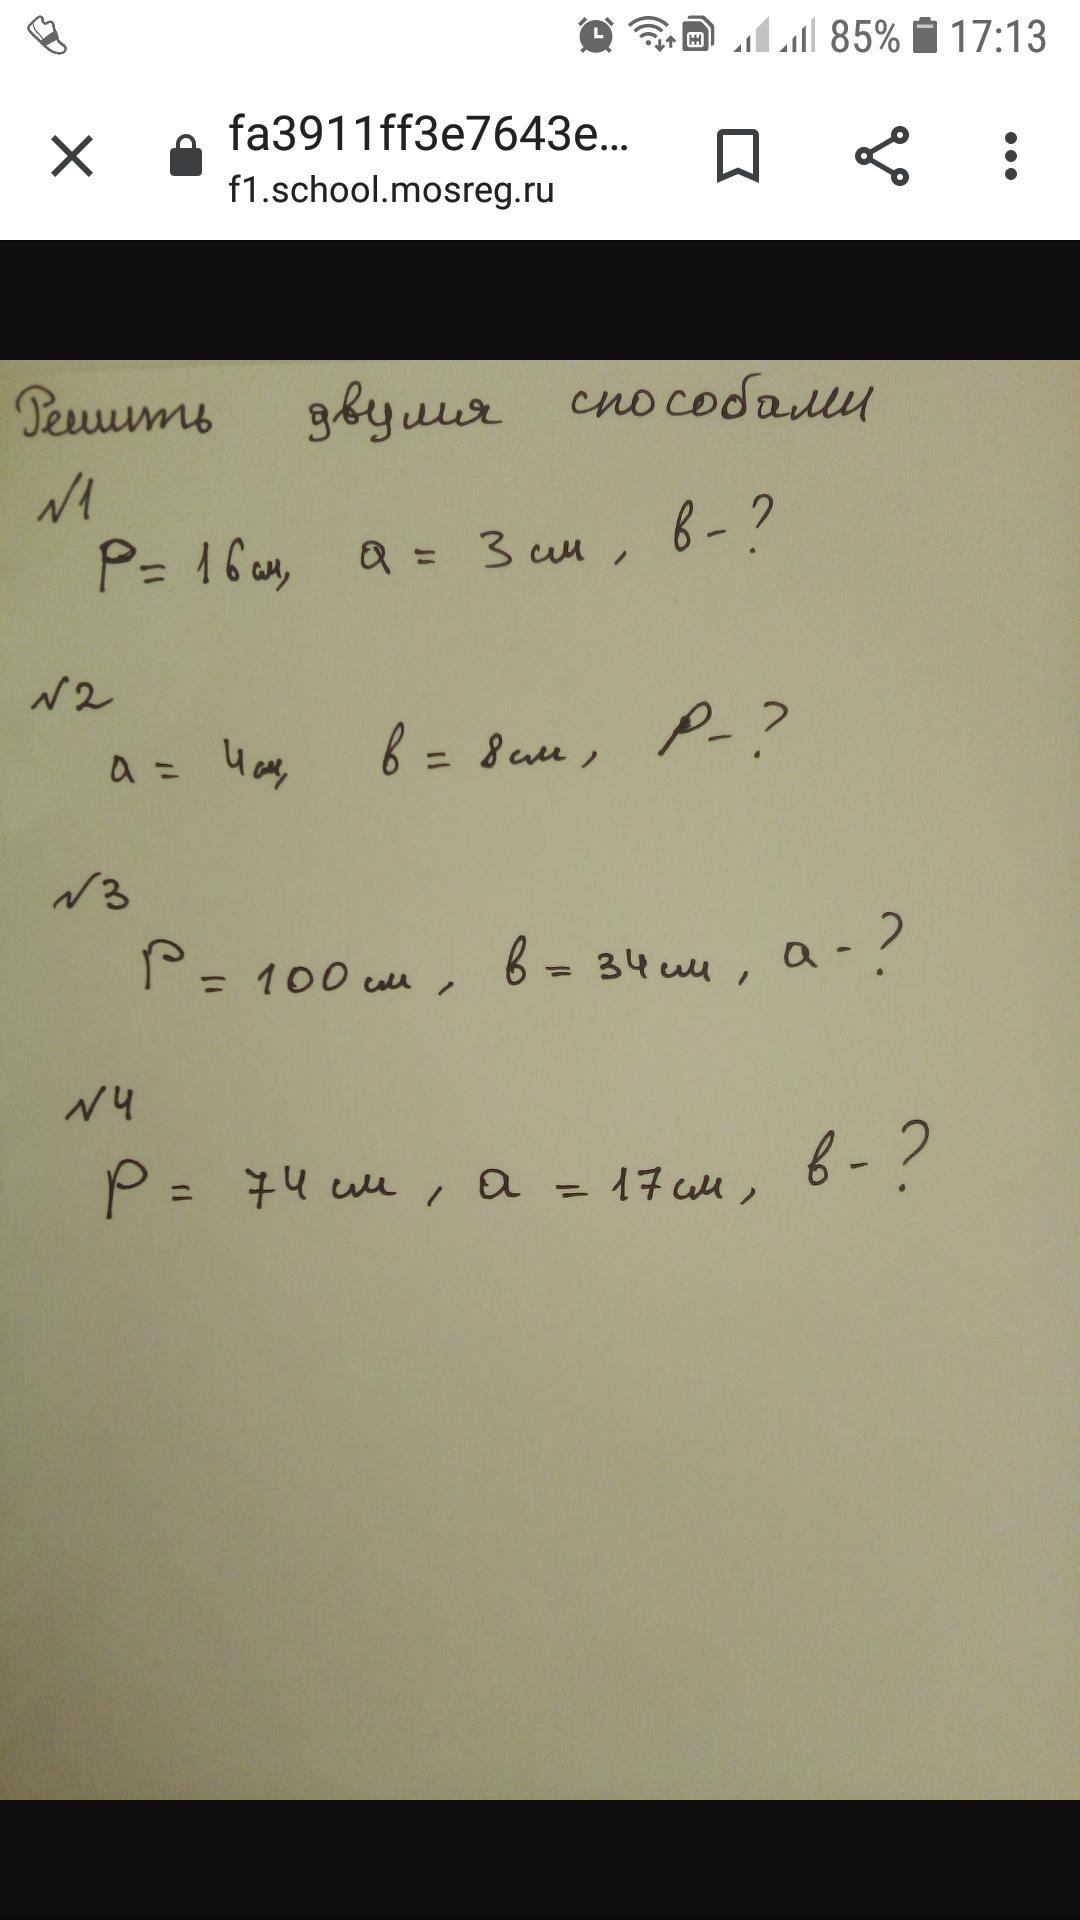 85% 17:13
fa3911ff3e7643e...
f1.school.mosreg.ru
Решить двумя способами
№1
P = 16 см, a = 3 см, в - ?
№2
a = 4 см, в = 8 см, P - ?
№3
P = 100 см, в = 34 см, a - ?
№4
P = 74 см, a = 17 см, в - ?